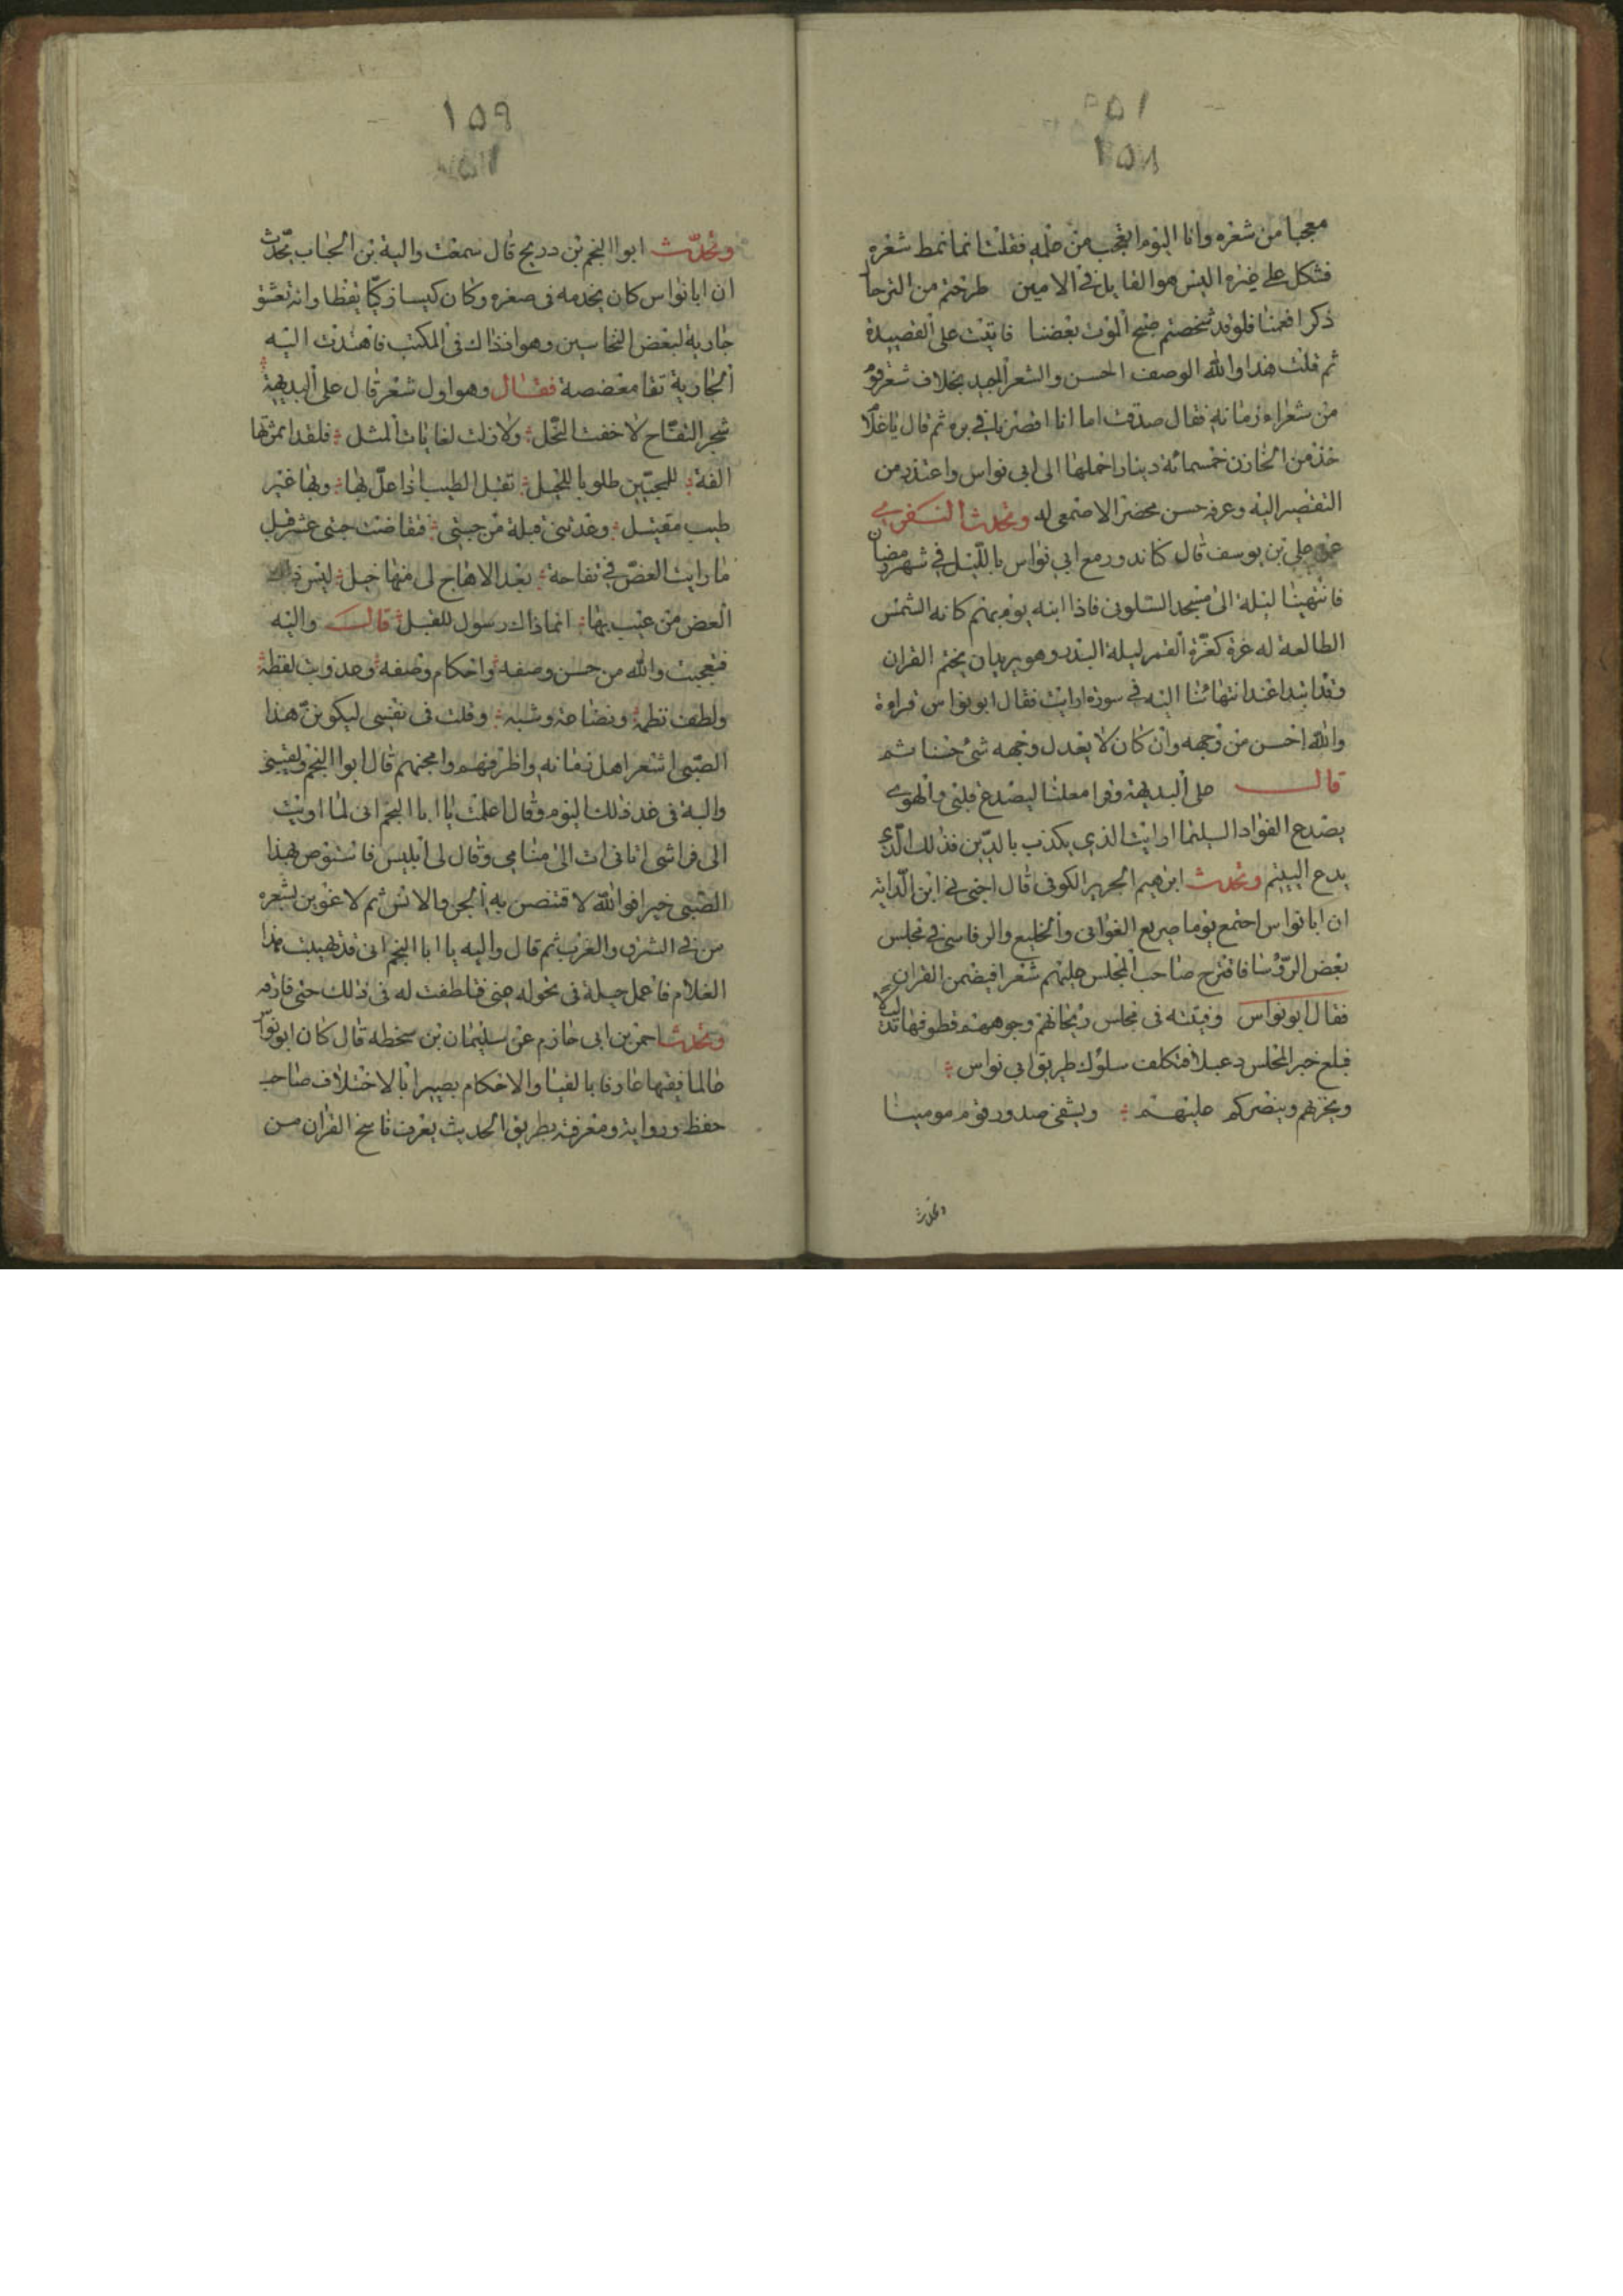 ١٥٨
معجبا من شعره وانا اليوم اعجب من علمه فقلت انما نمط شعره
فشكل على غيره اليس هو القايل فى الامين طرحتم من الترحا
ذكرا فغمنا فلو قد شخصتم صبح الموت بعضنا فاتيت على القصيدة
ثم قلت هذا والله الوصف الحسن والشعر الجيد بخلاف شعر
من شعراء زمانه فقال صدقت اما انا افصرنا فى بره ثم قال يا غلام
خذ من الخازن خمسمائة دينار احملها الى ابى نواس واعتذر من
التقصير اليه وعرفه حسن محضر الاصمعى له وتحدث
على بن يوسف قال كنا ندور مع ابي نواس بالليل في شهر رمضان
فانتهينا ليلة الى مسجد السلونى فاذا ابنه يؤمهم كانه الشمس
الطالعة له غرة كغرة القمر ليلة البدر وهو يريد ان يختم القران
وقد ابتدا عند انتهائنا اليه في سورة ارايت فقال ابو نواس قراءة
والله احسن من وجهه وان كان لا يعدل وجهه شئ حسنا ثم
قال على البديهة وقرا معلنا ليصدع قلبى والهوى
يصدع الفؤاد السليما ارايت الذي يكذب بالدين فذلك الذي
يدع اليتيم وتحدث ابرهيم الجريرالكوفى قال اخبرني ابن الداية
ان ابا نواس اجتمع يوما صريع الغوانى والخليع والرقاسى في مجلس
بعض الرؤسا فاقترح صاحب المجلس عليهم شعرا فيضمن القران
فقال ابو نواس وفيتة فى مجلس ريحانهم وجوههم قطوفها تذليلا
فبلغ خبر المجلس دعبلا فتكلف سلوك طريق ابي نواس
ويخزهم وينصركم عليهم ويشفى صدور قوم مومينا
وتحدث
١٥٩
وتحدث ابوا النجم بن دريج قال سمعت والبة بن الحباب يحدث
ان ابا نواس كان يخدمه فى صغره وكان كيسا زكيا يقظا وانه تعشق
جارية لبعض النخاسين وهو اذ ذاك فى المكتب فاهدت اليه
الجارية تفا معضضة فقال وهو اول شعر قال على البديهة
شجر التفاح لا خفت النحل ولا زلت لغايات المثل فلقد اثمرتها
الفة للمحبين طلوبا للجبل تقبل الطيب اذا عل بها وبها غير
طيب مقبل وعدتنى قبلة من جبتى فقاضت جبتى عشر قبل
ما رايت العض في تفاحة بعد الا هاج لى منها خبل ليس ذاك
العض من عيب بها انما ذاك رسول للقبل قالت واليه
فتعجبت والله من حسن وصفه واحكام وصفه وعذوبة لفظه
ولطف نظمه وفصاحة وشبه وقلت فى نفسى ليكونن هذا
الصبى اشعر اهل زمانه واظرفهم وامجنهم قال ابوا النجم ولقينى
والبة فى غد ذلك اليوم وقال اعلمت يا ابا النجم انى لما اويت
الى فراشى اتانى ات الى منامى وقال لى ابليس فاستوص بهذا
الصبى خيرا فوالله لاقتنصن به الجن والانس ثم لاغوين بشعره
من في الشرق والغرب ثم قال واليه يا ابا النجم انى قد تهيبت هذا
الغلام فاعمل حيلة فى تحوله عنى فتلطفت له فى ذلك حتى فارقه
وتحدث احمز بن ابى حازم عن سليمان بن سخطه قال كان ابو نواس
عالما فقيها عارفا بالفتيا والاحكام بصيرا بالاختلاف صاحب
حفظ ورواية ومعرفة بطريق الحديث يعرف ناسخ القران من